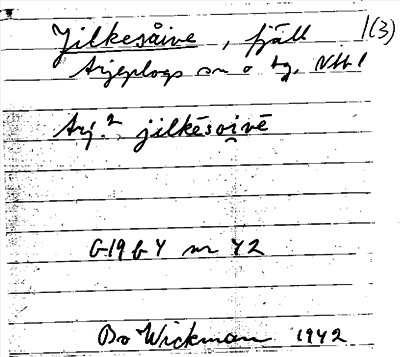 Jilkesåive, fjäll 1(3)
Arjeplogs sn o tg. Vbl
Arj.² jilkēsoi̯vē
G19 b Y nr 42
Bo Wickman 1942